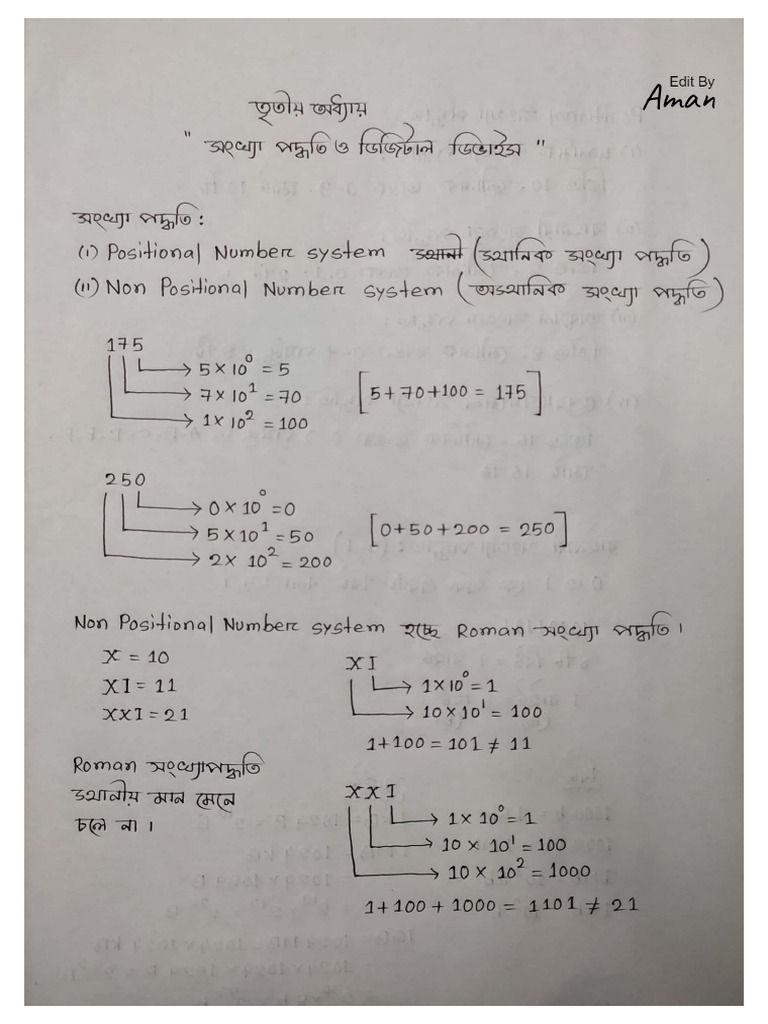 Edit By
Aman
তৃতীয় অধ্যায়
" সংখ্যা পদ্ধতি ও ডিজিটাল ডিভাইস "
সংখ্যা পদ্ধতি :
(i) Positional Number system (স্থানিক সংখ্যা পদ্ধতি)
(ii) Non Positional Number system (অস্থানিক সংখ্যা পদ্ধতি)
175
→ 5 × 10⁰ = 5
→ 7 × 10¹ = 70
[5 + 70 + 100 = 175]
→ 1 × 10² = 100
250
→ 0 × 10⁰ = 0
→ 5 × 10¹ = 50
[0 + 50 + 200 = 250]
→ 2 × 10² = 200
Non Positional Number system হচ্ছে Roman সংখ্যা পদ্ধতি ।
X = 10
XI = 11
XXI = 21
XI
→ 1 × 10⁰ = 1
→ 10 × 10¹ = 100
1 + 100 = 101 ≠ 11
Roman সংখ্যাপদ্ধতি
স্থানীয় মান মেনে
চলে না ।
XXI
→ 1 × 10⁰ = 1
→ 10 × 10¹ = 100
→ 10 × 10² = 1000
1 + 100 + 1000 = 1101 ≠ 21